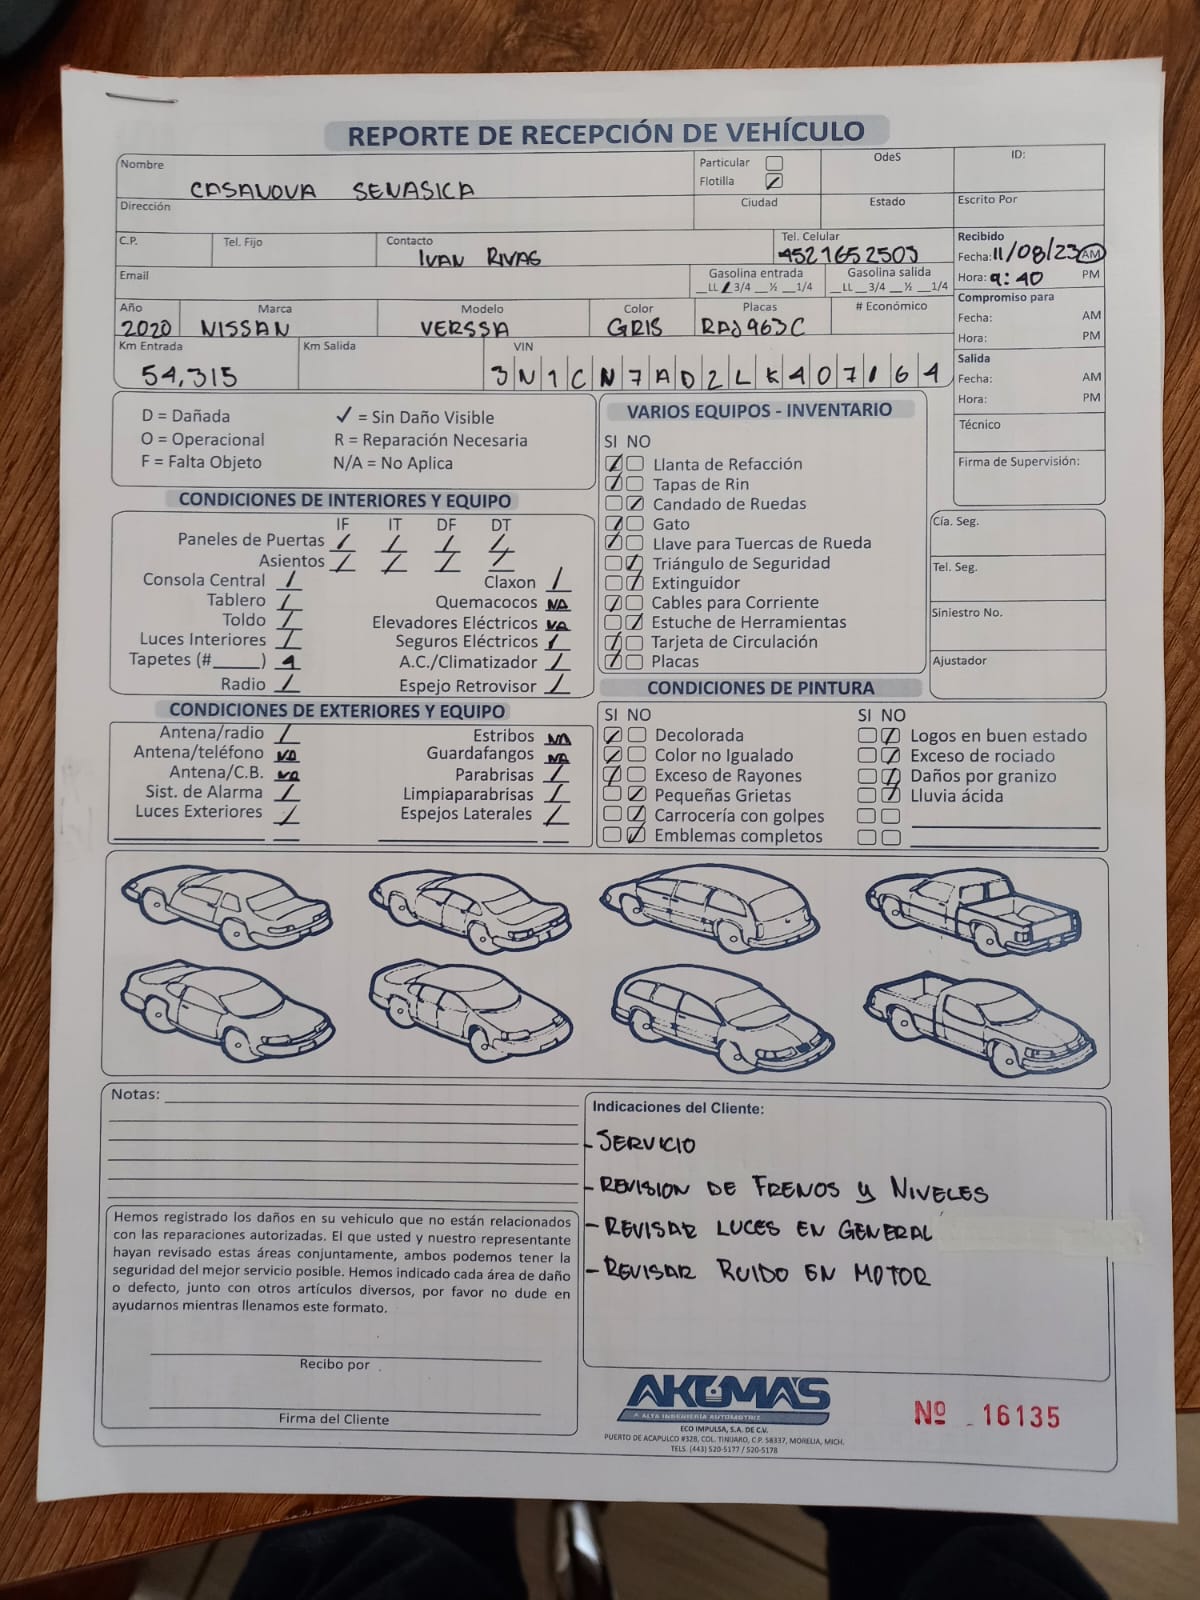 REPORTE DE RECEPCIÓN DE VEHÍCULO
Nombre CASANOVA SENASICA
Particular
Flotilla
OdeS
ID:
Dirección
Ciudad
Estado
Escrito Por
C.P.
Tel. Fijo
Contacto IVAN RIVAS
Tel. Celular 4521652503
Recibido
Fecha: 11/08/23 AM
Hora: 9:40 PM
Email
Gasolina entrada
__LL __3/4 __½ __1/4
Gasolina salida
__LL __3/4 __½ __1/4
Compromiso para
Fecha: AM
Hora: PM
Año 2020
Marca NISSAN
Modelo VERSSA
Color GRIS
Placas RAJ963C
# Económico
Km Entrada 54,315
Km Salida
VIN 3N1CN7AD2LK407164
Salida
Fecha: AM
Hora: PM
Técnico
Firma de Supervisión:
D = Dañada
O = Operacional
F = Falta Objeto
✓ = Sin Daño Visible
R = Reparación Necesaria
N/A = No Aplica
CONDICIONES DE INTERIORES Y EQUIPO
IF IT DF DT
Paneles de Puertas
Asientos
Consola Central
Tablero
Toldo
Luces Interiores
Tapetes (#_____) 4
Radio
Claxon
Quemacocos NA
Elevadores Eléctricos NA
Seguros Eléctricos
A.C./Climatizador
Espejo Retrovisor
VARIOS EQUIPOS - INVENTARIO
SI NO
Llanta de Refacción
Tapas de Rin
Candado de Ruedas
Gato
Llave para Tuercas de Rueda
Triángulo de Seguridad
Extinguidor
Cables para Corriente
Estuche de Herramientas
Tarjeta de Circulación
Placas
Cía. Seg.
Tel. Seg.
Siniestro No.
Ajustador
CONDICIONES DE EXTERIORES Y EQUIPO
Antena/radio
Antena/teléfono NA
Antena/C.B. NA
Sist. de Alarma
Luces Exteriores
Estribos NA
Guardafangos NA
Parabrisas
Limpiaparabrisas
Espejos Laterales
CONDICIONES DE PINTURA
SI NO
Decolorada
Color no Igualado
Exceso de Rayones
Pequeñas Grietas
Carrocería con golpes
Emblemas completos
SI NO
Logos en buen estado
Exceso de rociado
Daños por granizo
Lluvia ácida
Notas:
Indicaciones del Cliente:
- SERVICIO
- REVISION DE FRENOS y NIVELES
- REVISAR LUCES EN GENERAL
- REVISAR RUIDO EN MOTOR
Hemos registrado los daños en su vehiculo que no están relacionados
con las reparaciones autorizadas. El que usted y nuestro representante
hayan revisado estas áreas conjuntamente, ambos podemos tener la
seguridad del mejor servicio posible. Hemos indicado cada área de daño
o defecto, junto con otros artículos diversos, por favor no dude en
ayudarnos mientras llenamos este formato.
Recibo por
Firma del Cliente
AKUMA'S
ALTA INGENIERÍA AUTOMOTRIZ
ECO IMPULSA, S.A. DE C.V.
PUERTO DE ACAPULCO #328, COL. TINIJARO, C.P. 58337, MORELIA, MICH.
TELS. (443) 520-5177 / 520-5178
Nº 16135